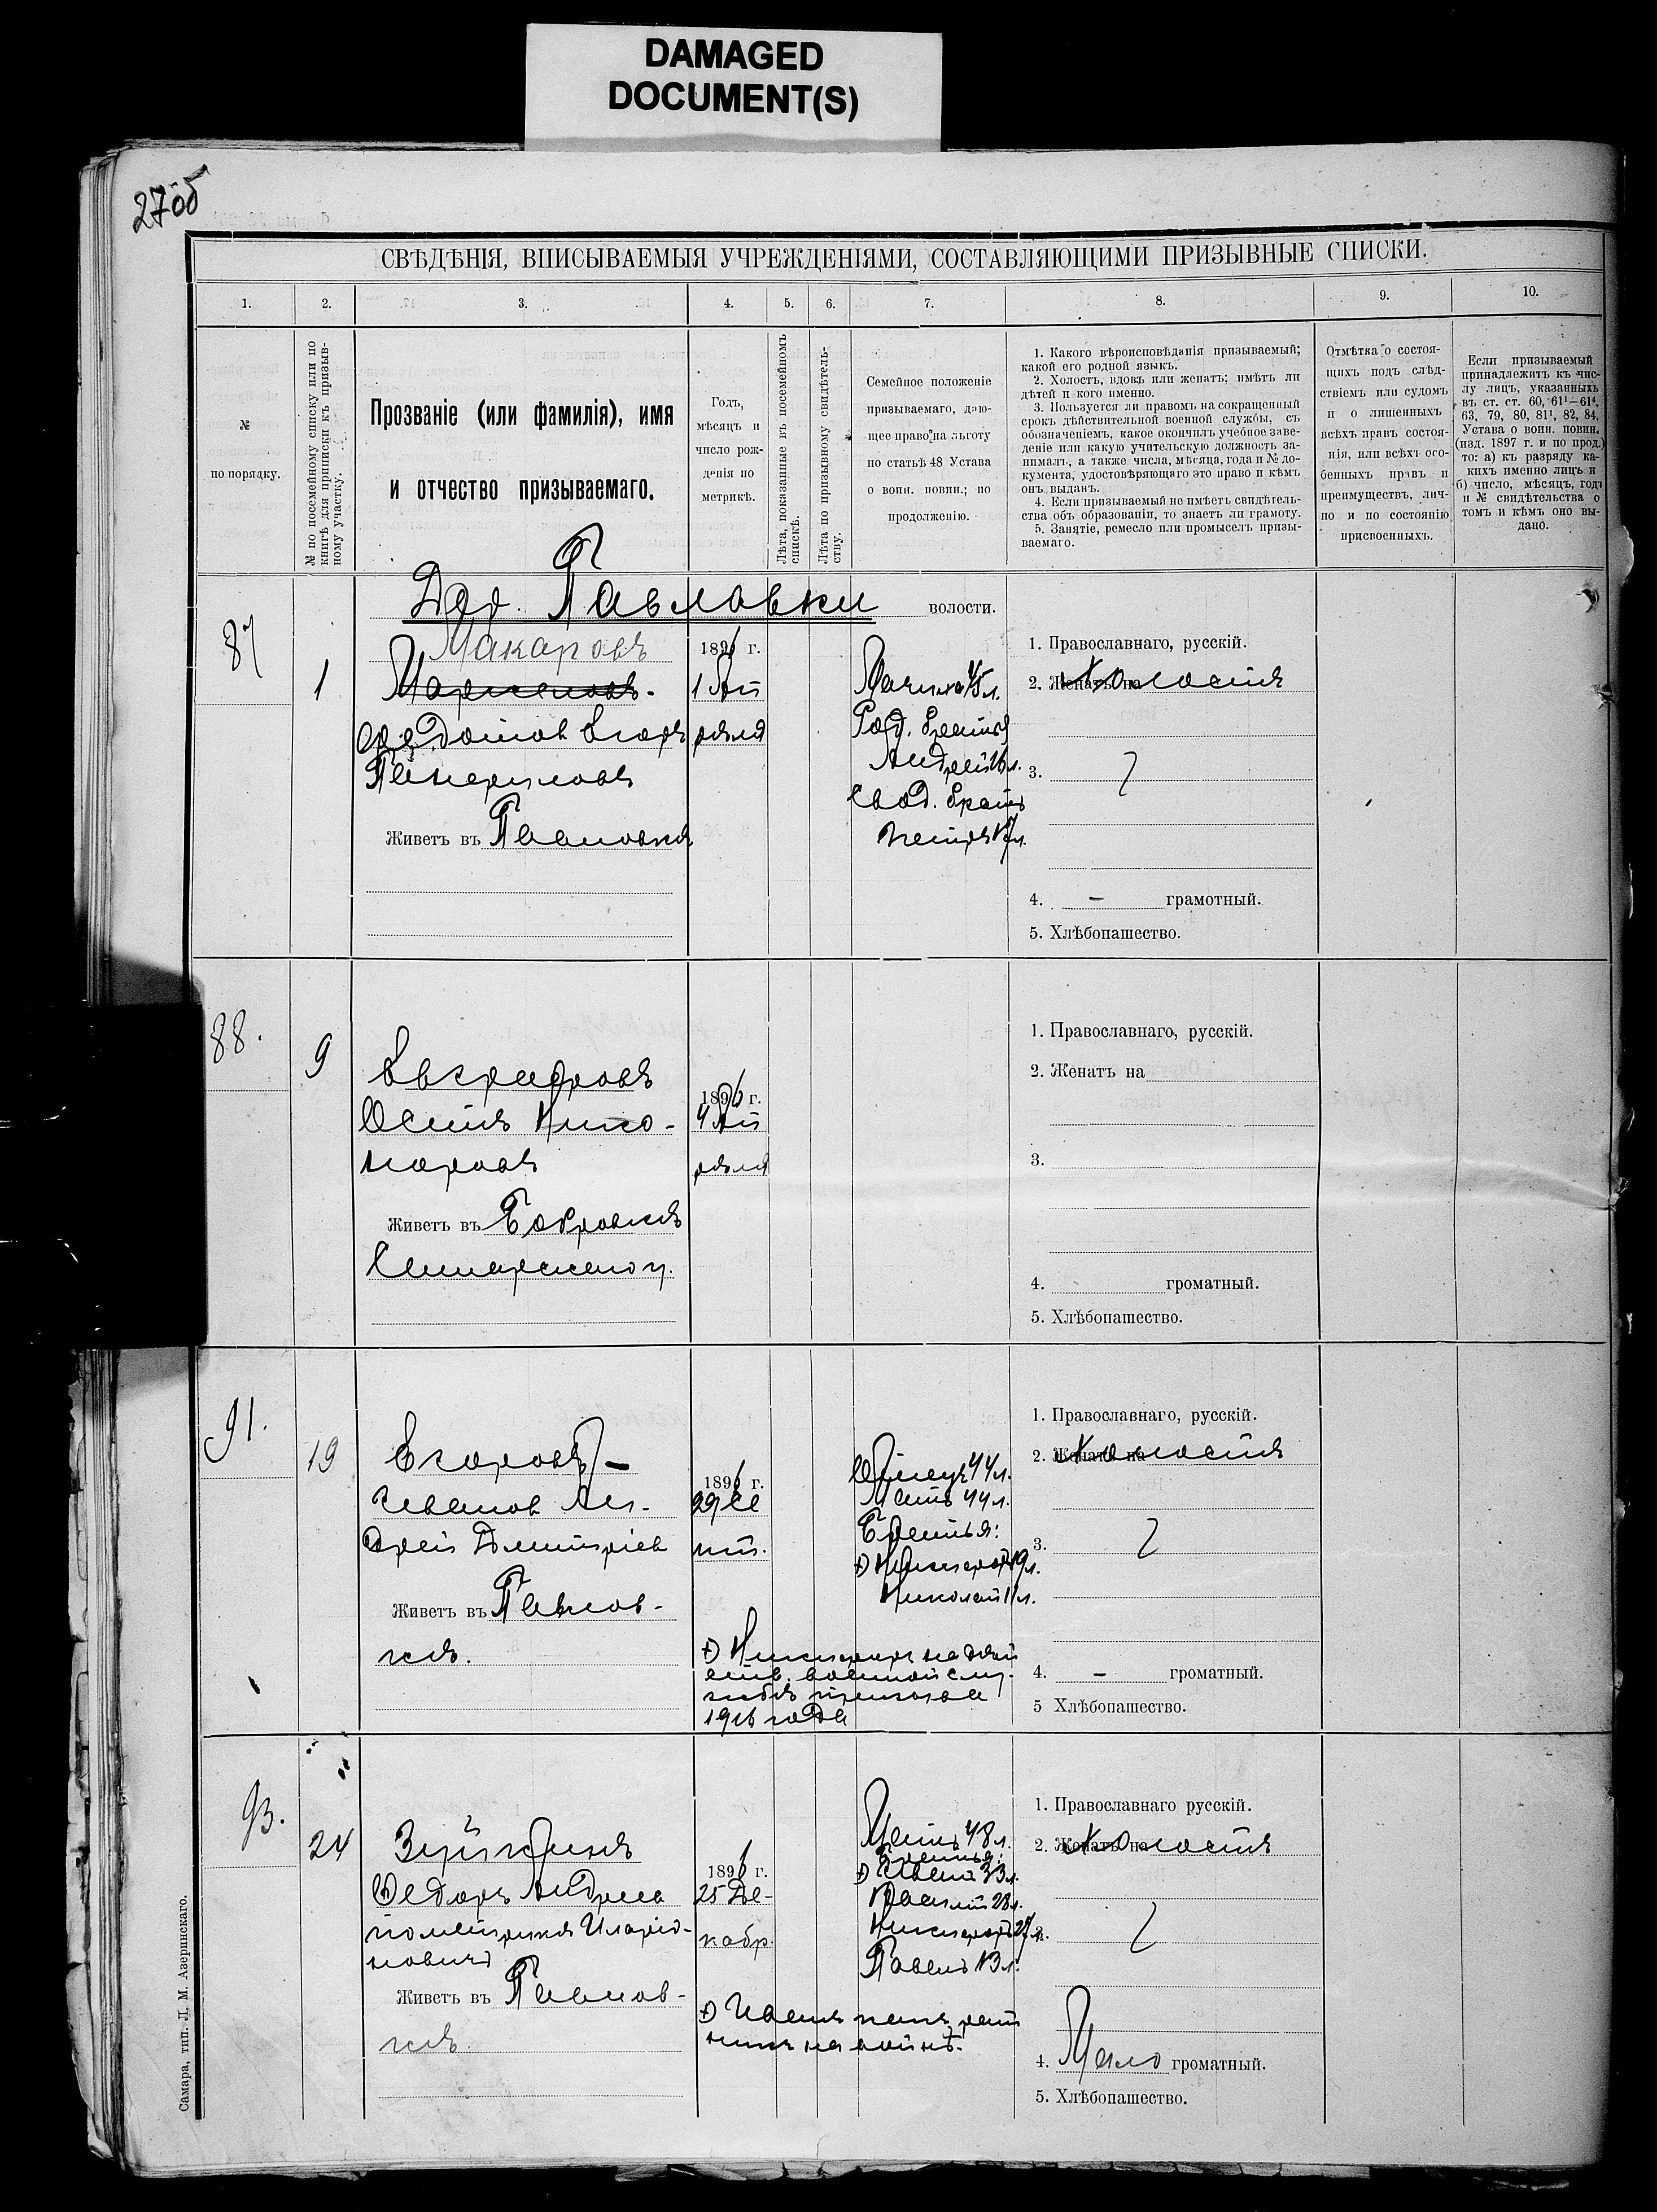 DAMAGED
DOCUMENT(S)
27об
СВѢДѢНІЯ, ВПИСЫВАЕМЫЯ УЧРЕЖДЕНІЯМИ, СОСТАВЛЯЮЩИМИ ПРИЗЫВНЫЕ СПИСКИ.
1. 2. 3. 4. 5. 6. 7. 8. 9. 10.
№
по порядку.
№ по посемейному списку или по
книгѣ для приписки къ призыв-
ному участку.
Прозваніе (или фамилія), имя
и отчество призываемаго.
Годъ,
мѣсяцъ и
число рож-
денія по
метрикѣ.
Лѣта, показанные въ посемейномъ
спискѣ.
Лѣта по призывному свидѣтель-
ству.
Семейное положеніе
призываемаго, даю-
щее право на льготу
по статьѣ 48 Устава
о воин. повин.; по
продолженію.
1. Какого вѣроисповѣданія призываемый;
какой его родной языкъ.
2. Холостъ, вдовъ или женатъ; имѣтъ ли
дѣтей и кого именно.
3. Пользуется ли правомъ на сокращенный
срокъ дѣйствительной военной службы, съ
обозначеніемъ, какое окончилъ учебное заве-
деніе или какую учительскую должность за-
нималъ, а также числа, мѣсяца, года и № до-
кумента, удостовѣряющаго это право и кѣмъ
онъ выданъ.
4. Если призываемый не имѣетъ свидѣтель-
ства объ образованіи, то знаетъ ли грамоту.
5. Занятіе, ремесло или промыселъ призы-
ваемаго.
Отмѣтка о состоя-
щихъ подъ слѣд-
ствіемъ или судомъ
и о лишенныхъ
всѣхъ правъ состоя-
нія, или всѣхъ осо-
бенныхъ правъ и
преимуществъ, лич-
но и по состоянію
присвоенныхъ.
Если призываемый
принадлежитъ къ чис-
лу лицъ, указанныхъ
въ ст. ст. 60, 61¹—61⁴,
63, 79, 80, 81¹, 82, 84,
Устава о воин. повин.
(изд. 1897 г. и по прод.)
то: а) къ разряду ка-
кихъ именно лицъ и
б) число, мѣсяцъ, годъ
и № свидѣтельства о
томъ и кѣмъ оно вы-
дано.
Дер. Павловки волости.
87
1
Макаровъ
Федотов Егоръ
Живетъ въ Павловкѣ
1896 г.
1 Ап
рѣля
Мачиха 45 л.
Род. братья
Андрей 16 л.
Свод. братъ
Петръ 17 л.
1. Православнаго, русскій.
2. Женатъ на Холостъ
3.
4. — грамотный.
5. Хлѣбопашество.
88.
9
Евграфовъ
Осипъ Нико-
норовъ
Живетъ въ Покровкѣ
1896 г.
4 Ап
рѣля
1. Православнаго, русскій.
2. Женатъ на
3.
4. громатный.
5. Хлѣбопашество.
91.
19
Егоровъ —
Ивановъ Ан-
дрей Дмитріев
Живетъ въ Павлов-
кѣ.
1896 г.
29 Се
нт.
Отецъ 44 л.
Мать 44 л.
Братья:
+) Никифоръ 19 л.
Николай 11 л.
+) Никифоръ на дѣй
ств. военной слу-
жбѣ призыва
1916 года
1. Православнаго, русскій.
2. Женатъ на Холостъ
3.
4. — громатный.
5 Хлѣбопашество.
93.
24
Зуйкинъ
Федоръ Андреев
по метрикѣ Иларіо-
новичъ
Живетъ въ Павлов-
кѣ
1896 г.
25 Де-
кабр.
Мать 48 л.
Братья:
+) Иванъ 33 л.
Василій 28 л.
Никифоръ 27 л.
Павелъ 13 л.
+) Иванъ какъ рат
никъ на войнѣ.
1. Православнаго русскій.
2. Женатъ на Холостъ
3.
4. Мало громатный.
5. Хлѣбопашество.
Самара, тип. Л. М. Азеринскаго.